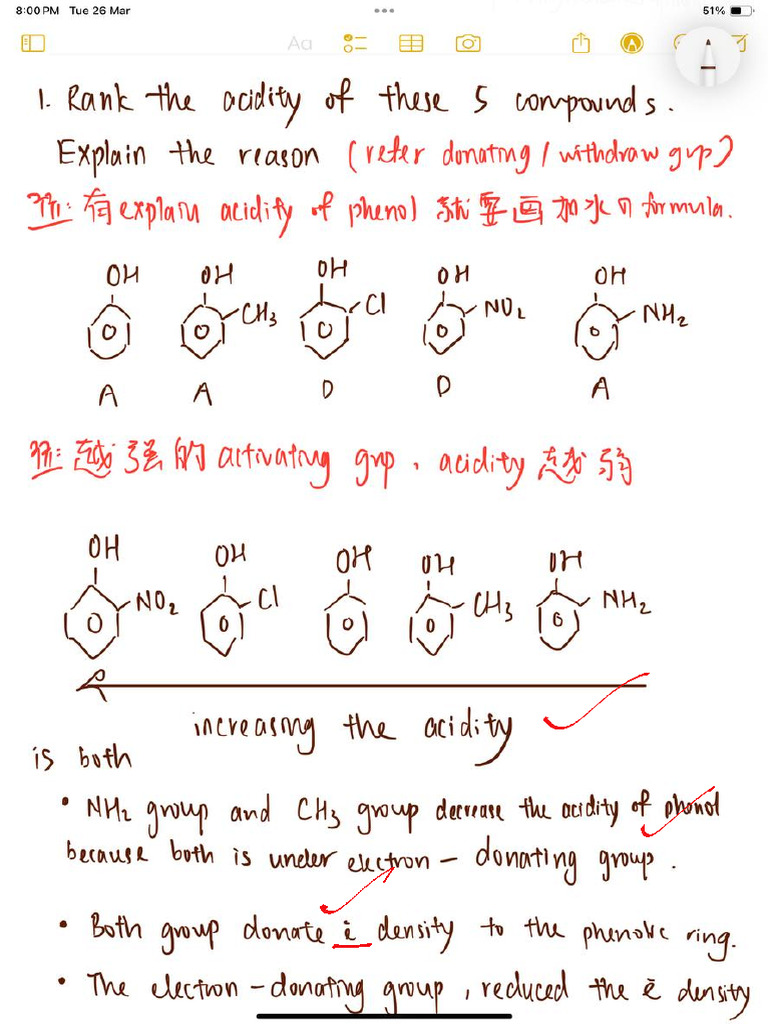 8:00 PM Tue 26 Mar 51%
Aa
1. Rank the acidity of these 5 compounds.
Explain the reason (refer donating / withdraw grp)
有 explain acidity of phenol 就要画加水的 formula.
OH OH OH OH OH
CH3 Cl NO2 NH2
A A D D A
越强的 activating grp, acidity 越弱
OH OH OH OH OH
NO2 Cl CH3 NH2
increasing the acidity
is both
• NH2 group and CH3 group decrease the acidity of phenol
because both is under electron - donating group.
• Both group donate ē density to the phenolic ring.
• The electron - donating group, reduced the ē density